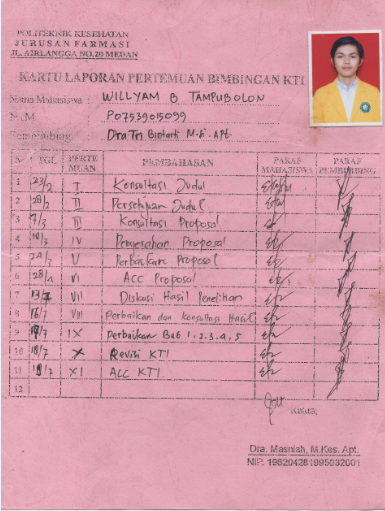 POLITEKNIK KESEHATAN
JURUSAN FARMASI
JL. AIRLANGGA NO.20 MEDAN
KARTU LAPORAN PERTEMUAN BIMBINGAN KTI
Nama Mahasiswa : WILLYAM B TAMPUBOLON
NIM : P07539015099
Pembimbing : Dra Tri Bintarti M.Si. Apt.
No TGL PERTEMUAN PEMBAHASAN PARAF MAHASISWA PARAF PEMBIMBING
1 23/2 I Konsultasi Judul
2 28/2 II Persetujuan Judul
3 7/3 III Konsultasi Proposal
4 10/3 IV Penyerahan Proposal
5 V Perbaikan Proposal
6 VI ACC Proposal
7 13/7 VII Diskusi Hasil Penelitian
8 16/7 VIII Perbaikan dan konsultasi Hasil
9 17/7 IX Perbaikan Bab 1.2.3.4.5
10 18/7 X Revisi KTI
11 18/7 XI ACC KTI
12
Ketua,
Dra. Masniah, M.Kes. Apt.
NIP. 196204281995032001